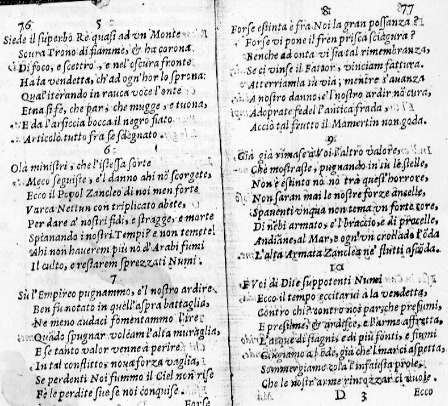 76
5
Siede il superbo Rè quasi ad vn Monte
Scura Trono di fiamme, & ha corona
Di foco, e scettro, e nel'oscura fronte
Ha la vendetta, ch'ad ogn'hor lo sprona:
Qual'iterando in rauca voce l'onte
Etna si fè, che par, che mugge, e tuona,
E da l'arsiccia bocca il negro fiato
Articolò tutto fra se sdegnato.
6
Olà ministri, che l'istessa sorte
Meco seguiste, e'l danno ahi nō scorgete,
Ecco il Popol Zancleo di noi men forte
Varca Nettun con triplicato abete,
Per dare a' nostri fidi, e stragge, e morte
Spianando i nostri Tempi? e non temete!
Ahi non hauerem più nō d'Arabi fumi
Il culto, e restarem sprezzati Numi.
7
Sù l'Empireo pugnammo, e'l nostro ardire
Ben fu notato in quell'aspra battaglia,
Ne meno audaci fomentammo l'ire
Quādo spugnar voleam l'alta muraglia,
E se tanto valor venne à perire
In tal conflitto, noua forza vaglia,
Se perdenti Noi fummo il Ciel non rise
Fè le perdite sue se noi conquise.
Forse
77
8
Forse estinta è fra Noi la gran possanza?
Forse vi pone il fren prisca sciagura?
Benche ad onta vi sia tal rimembranza,
Se ci vinse il Fattor, vinciam fattura.
Atterriamla in via; mentre s'auanza
A nostro danno, e'l nostro ardir nō cura,
Adoprate fedel l'antica frada,
Acciò tal frutto il Mamertin non goda.
9
Già già rimase à Voi l'altro valore,
Che mostraste, pugnando in sù le stelle,
Non è estinto nò nò tra quest'horrore,
Non saran mai le nostre forze ancelle,
Spauenti vnqua non tema vn forte core,
Di nēbi armato, e'l braccio, e di procelle,
Andiāne, al Mar, e ogn'vn crollādo l'ōda
L'alta Armata Zanclea ne' flutti ascōda.
10
E Voi di Dite suppotenti Numi
Ecco il tempo eccitarui à la vendetta,
Contro chi contro noi par, che presumi,
E presume, & ardisce, e l'arme affretta
L'acque di stagni, e di più fonti, e fiumi
Giugiamo a l'ōde, già che'l mar ci aspetta,
Sommergiamo l'infausta prole,
Che le nostr'arme rintuzzar ci vuole.
D 3
Ecco